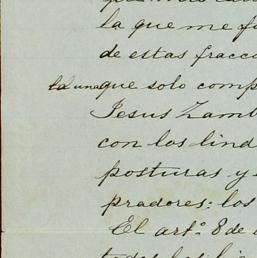 la que me fu
de estas fracc
que solo comp
Jesus Zamb
con los lind
posturas y
pradores; los
El artº 8 de